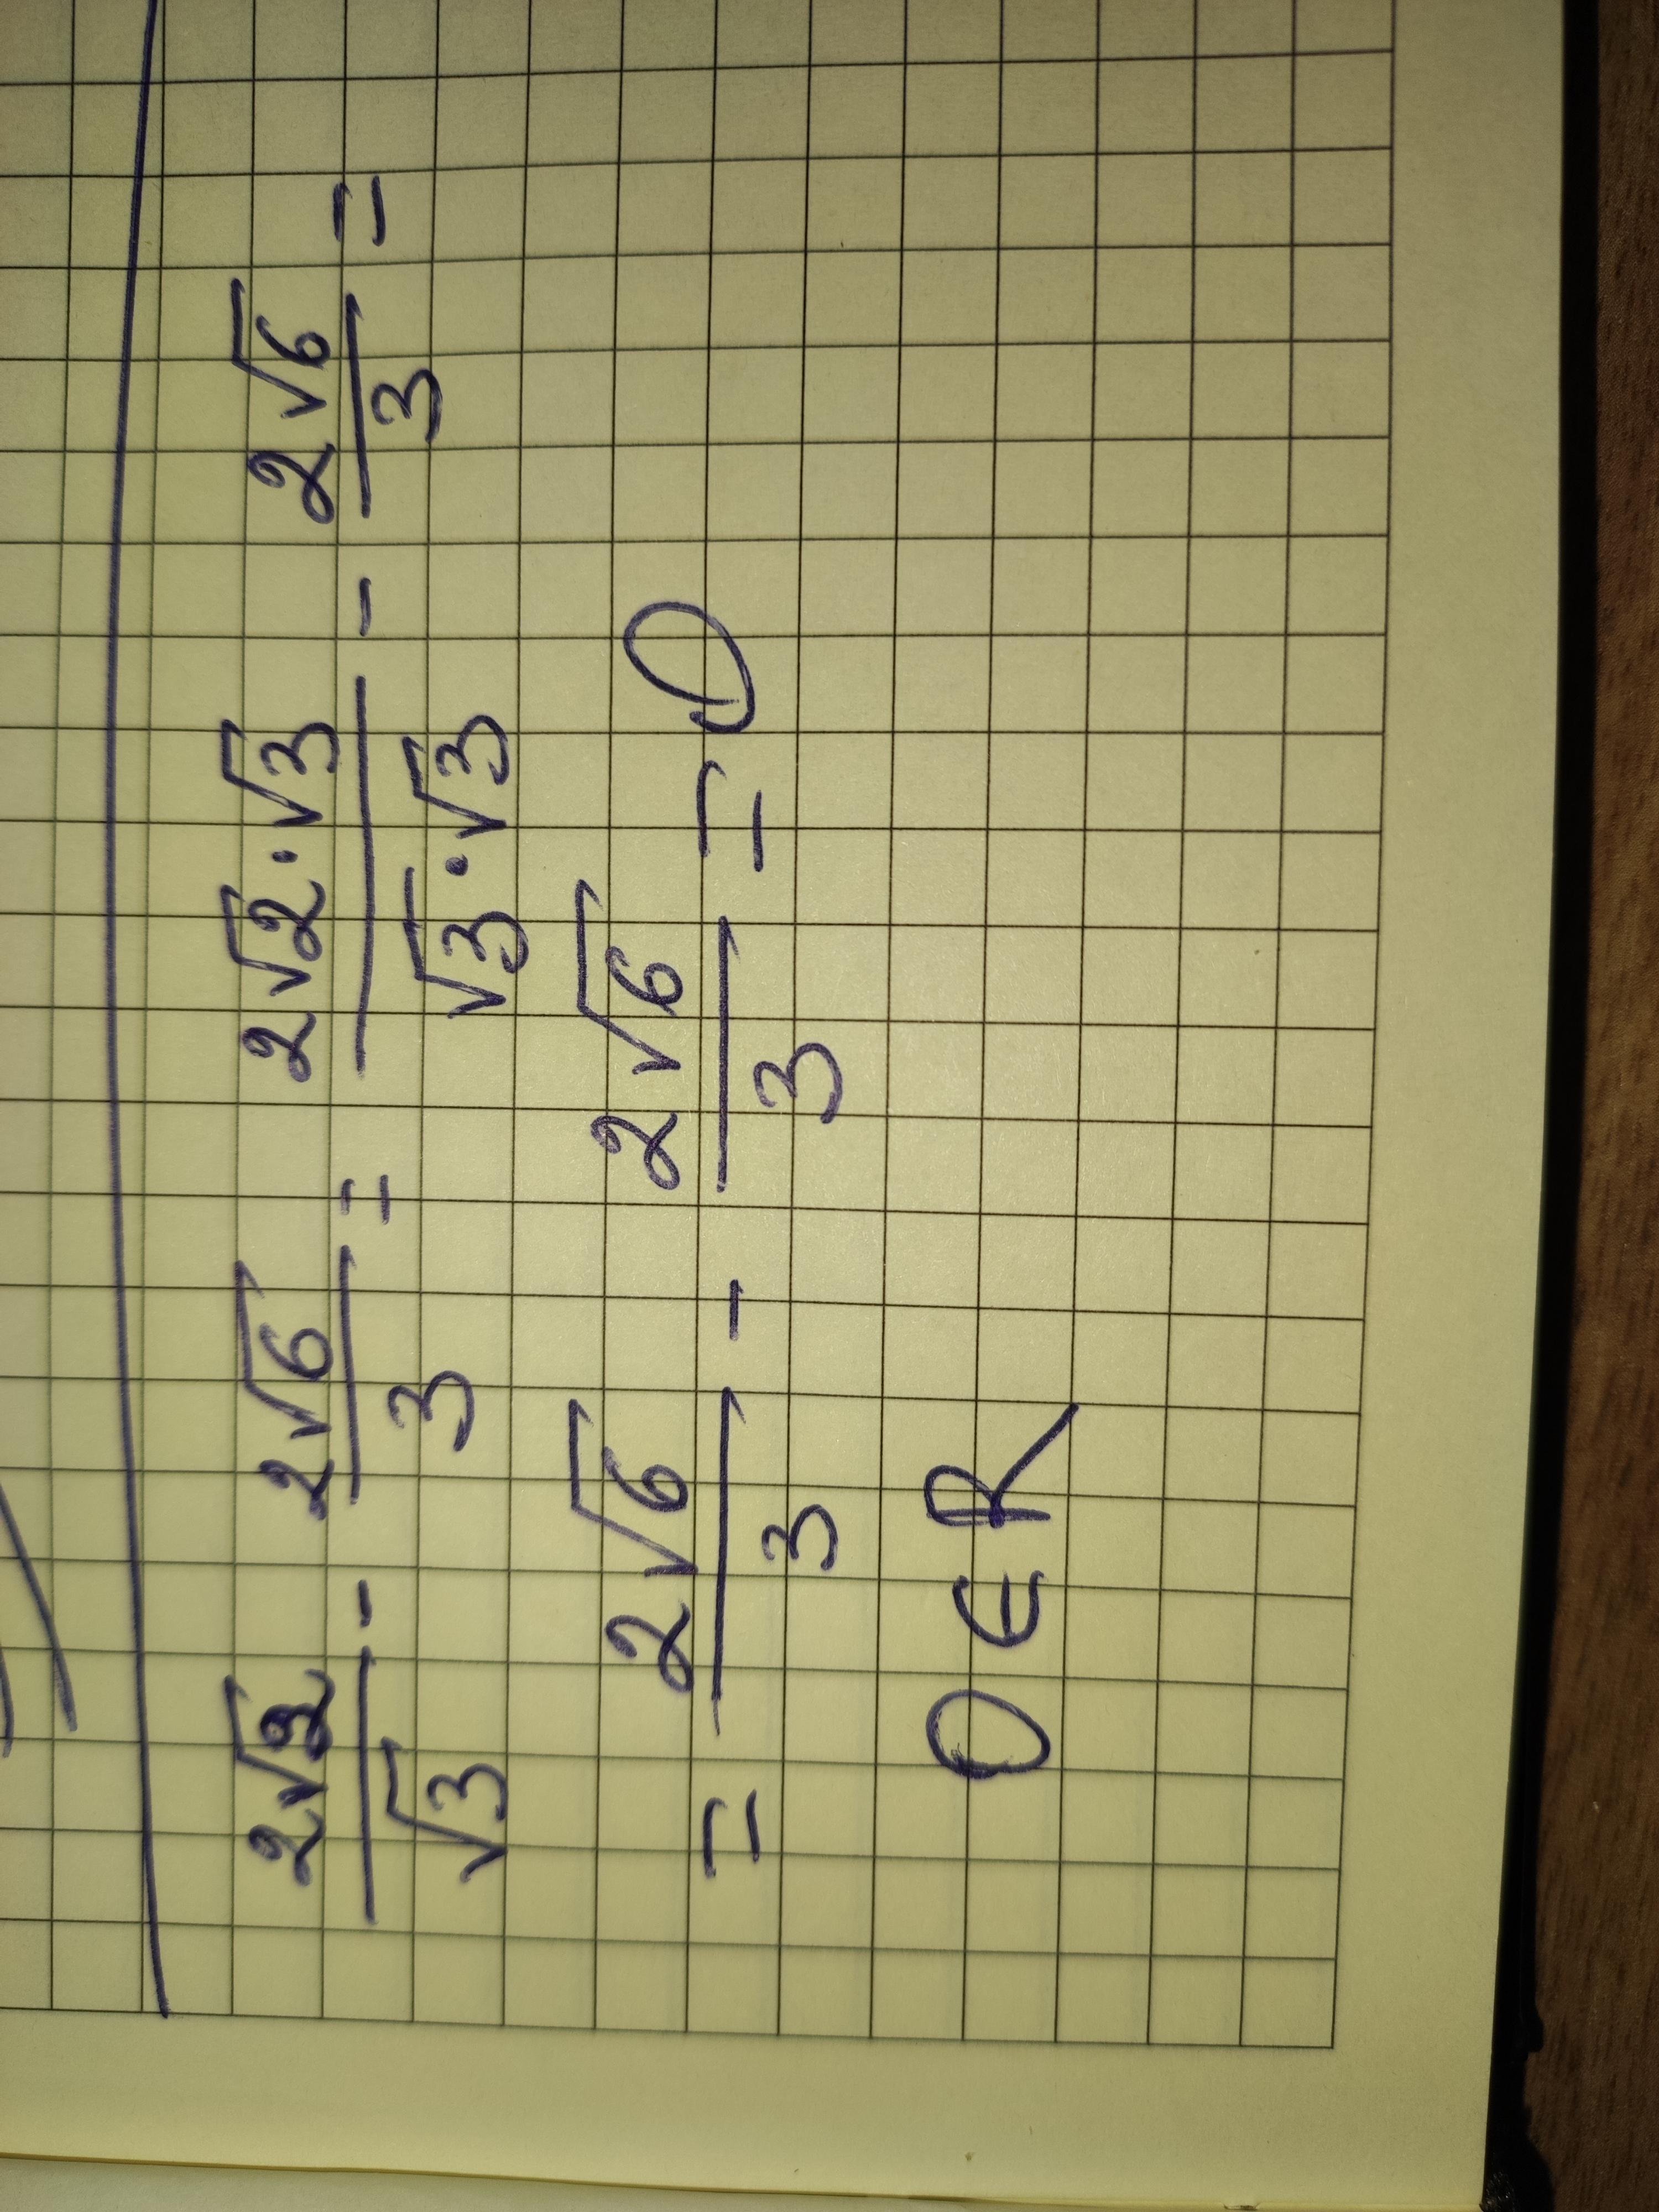 2√2/√3 - 2√6/3 = 2√2·√3/√3·√3 - 2√6/3 =
= 2√6/3 - 2√6/3 = 0
0 ∈ R